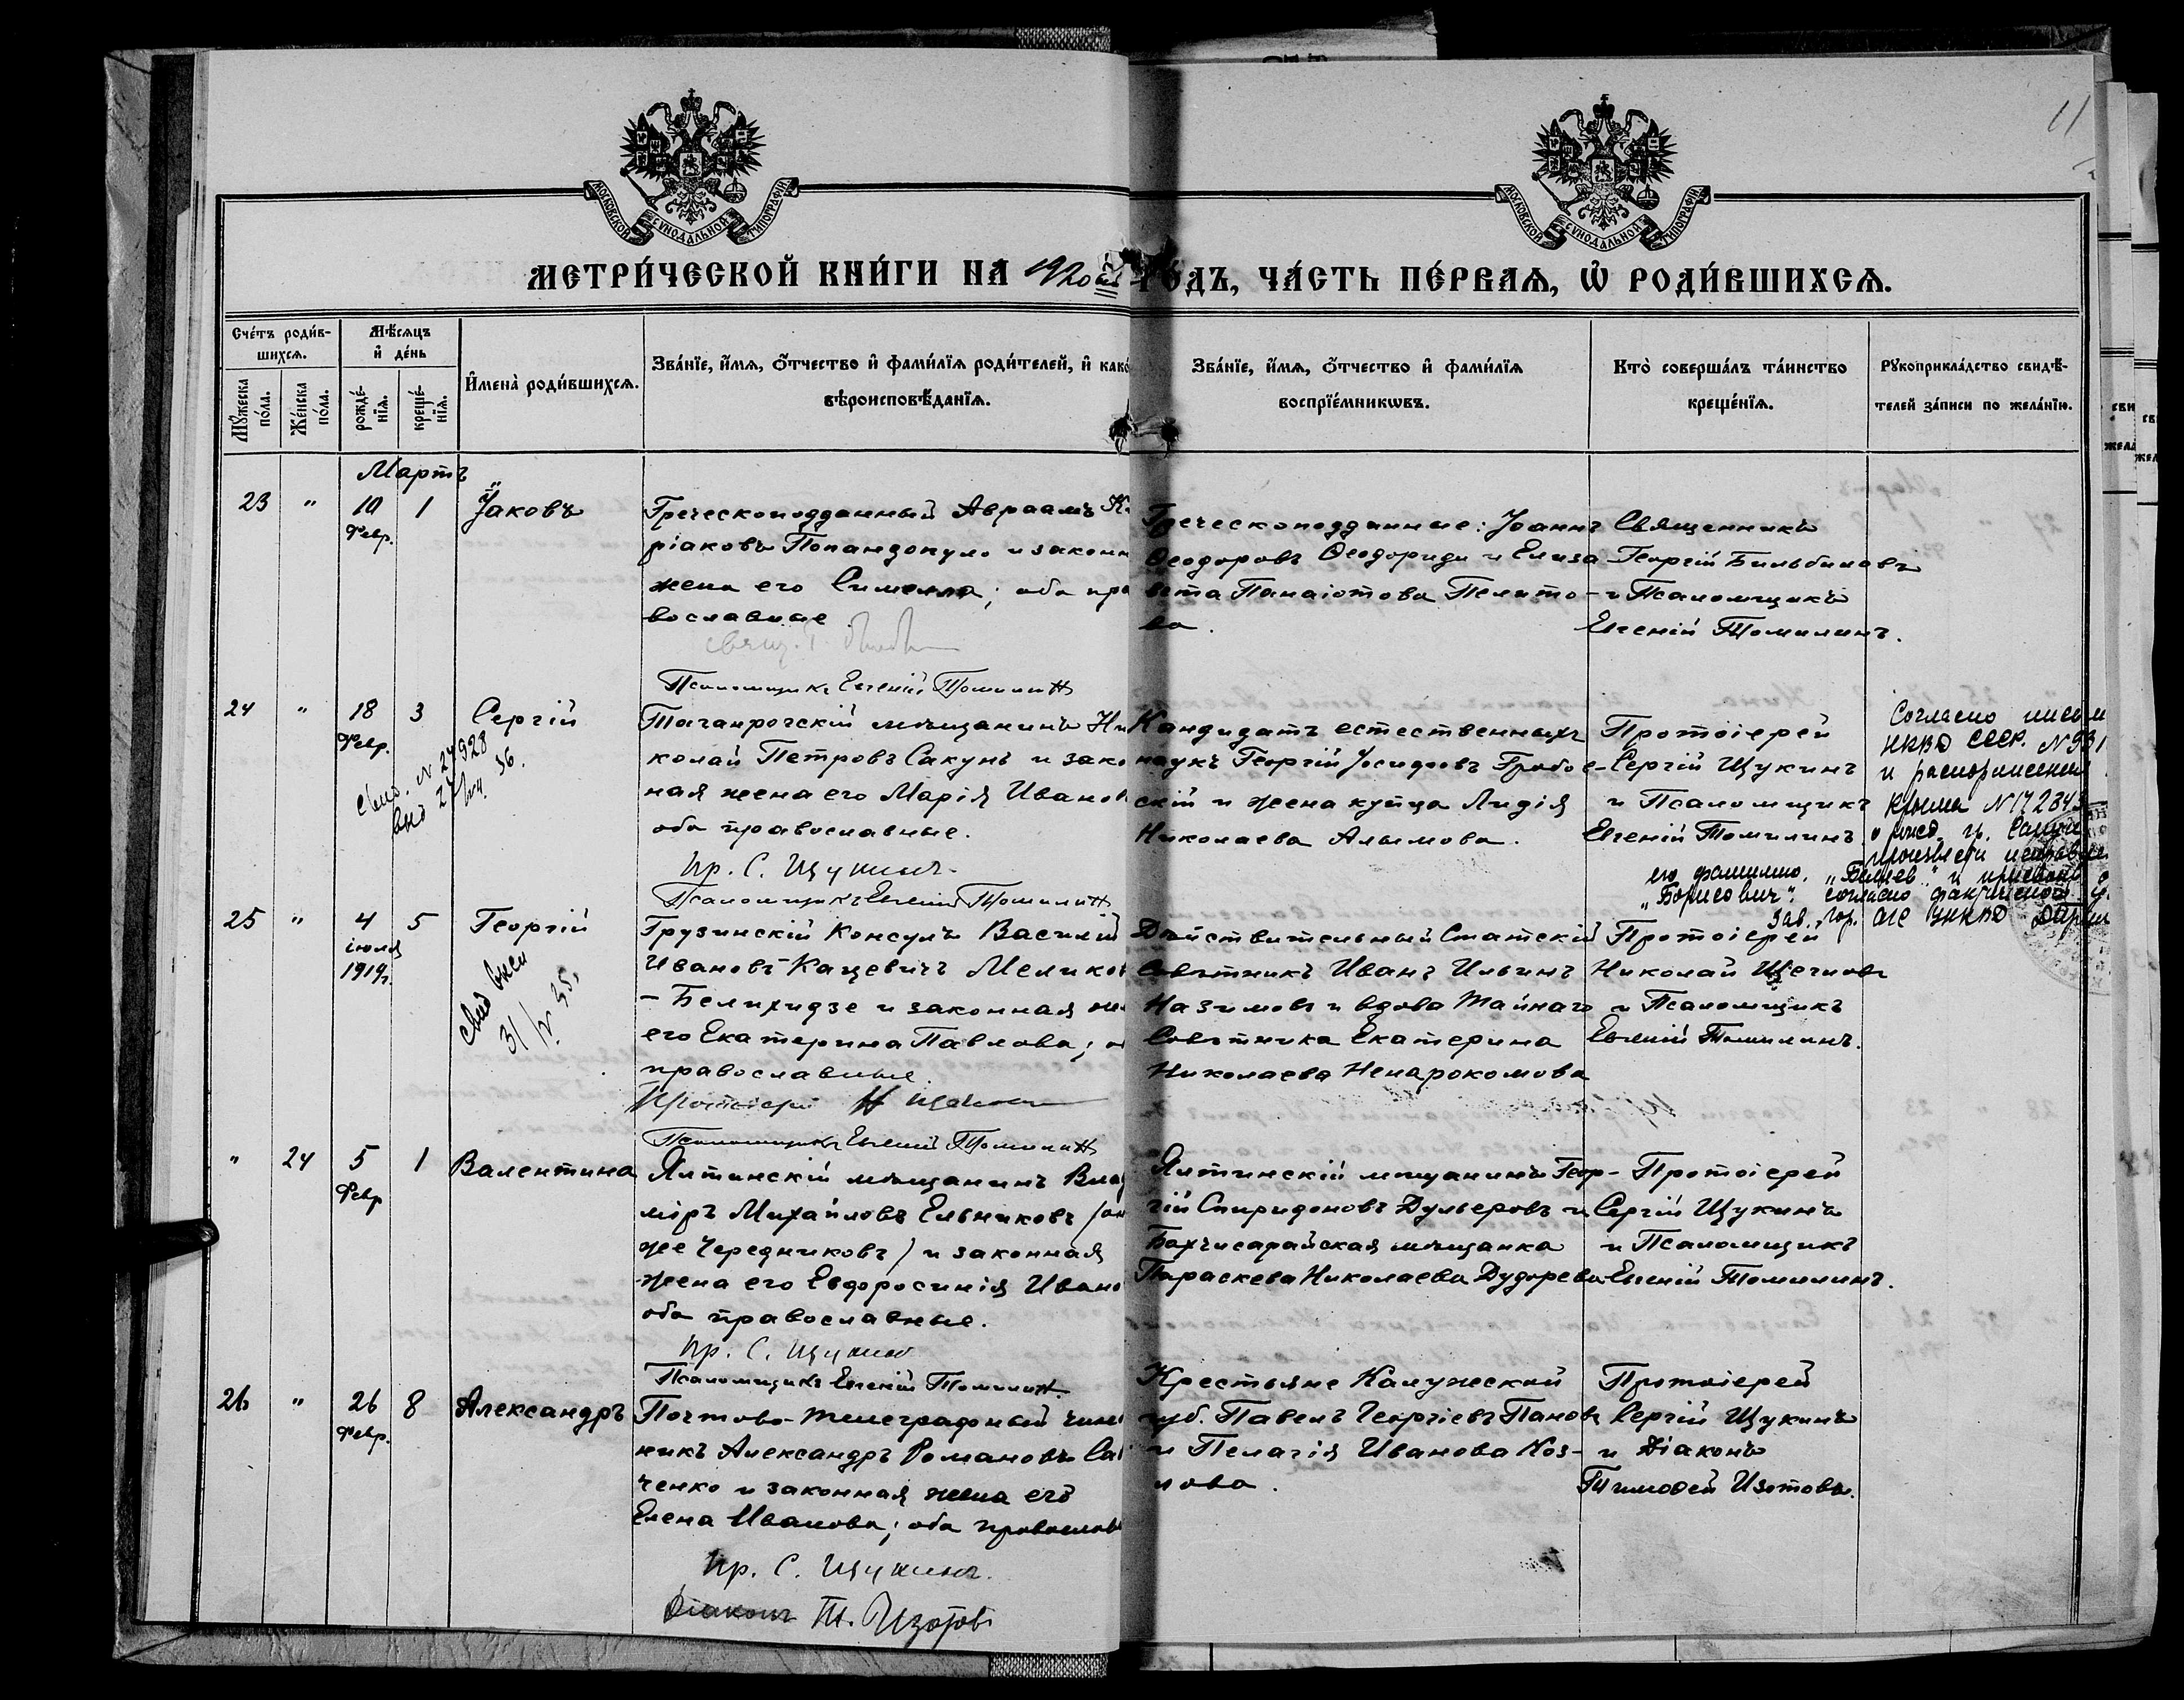 11
МОСКОВСКОЙ СУНОДАЛЬНОЙ ТИПОГРАФІИ
МОСКОВСКОЙ СУНОДАЛЬНОЙ ТИПОГРАФІИ
МЕТРИ́ЧЕСКОЙ КНИ́ГИ НА 1920 ый ГО́ДЪ, ЧА́СТЬ ПЕ́РВАѦ, Ѡ҆ РОДИ́ВШИХСѦ.
Сче́тъ роди́в-
шихсѧ.
Мꙋ́жеска по́ла.
Же́нска по́ла.
Мѣ́сѧцъ
и҆ де́нь
рожде́-
нїѧ.
креще́-
нїѧ.
И҆мена̀ роди́вшихсѧ.
Зва́нїе, и҆́мѧ, ѻ҆́тчество и҆ фами́лїѧ роди́телей, и҆ како́
вѣроисповѣ́данїѧ.
Зва́нїе, и҆́мѧ, ѻ҆́тчество и҆ фами́лїѧ
воспрїе́мникѡвъ.
Кто̀ соверша́лъ та́инство
креще́нїѧ.
Рꙋкоприкла́дство свидѣ́-
телей за́писи по жела́нїю.
Мартъ
23 " 10 1 Іаковъ
Февр.
Греческоподданный Авраамъ Ки
ріаковъ Попандопуло и законн
жена его Симела; оба пра
вославные
Псаломщикъ Евгеній Томилинъ
Греческоподданные: Іоаннъ
Ѳеодоровъ Ѳеодориди и Елиза
вета Панаіотова Пелито-
ва.
Священникъ
Георгій Бильбиновъ
и Псаломщикъ
Евгеній Томилинъ.
24 " 18 3 Сергій
Февр.
свид. N 24928
27/ 36.
Таганрогскій мѣщанинъ Ни
колай Петровъ Сакунъ и зако
ная жена его Марія Иванов
оба православные.
пр. С. Щукинъ
Псаломщикъ Евгеній Томилинъ
Кандидатъ естественныхъ
наукъ Георгій Іосифовъ
скій и жена купца Лидія
Николаева Алымова.
Протоіерей
Сергій Щукинъ
и Псаломщикъ
Евгеній Томилинъ
Согласно письм
НКВД СССР. N 931
и распоряжения
Крыма N 172343
гр. Сакуна
произвести исправле
его фамилию. и присвоить
"Борисович". согласно фактической
Зав. гор. ЗАГС
25 " 4 5 Георгій
іюля
1919г.
свид выд
31/V 35.
Грузинскій Консулъ Василій
Ивановъ Кацевичъ Меликов
- Белихидзе и законная же
его Екатерина Павлова; о
православные.
Протоіерей Н
Псаломщикъ Евгеній Томилинъ
Дѣйствительный Статскій
Совѣтникъ Иванъ Ильинъ
Назимовъ и вдова Тайнаго
Совѣтника Екатерина
Николаева Ненарокомова
Протоіерей
Николай
и Псаломщикъ
Евгеній Томилинъ.
" 24 5 1 Валентина
Февр
Ялтинскій мѣщанинъ Влад
міръ Михайловъ Ельниковъ (он
же Чередниковъ) и законная
жена его Евфросинія Ивано
оба православные.
пр. С. Щукинъ
Псаломщикъ Евгеній Томилинъ.
Ялтинскій мѣщанинъ Геор-
гій Спиридоновъ Дульеровъ и
Бахчисарайская мѣщанка
Параскева Николаева Дударева
Протоіерей
Сергій Щукинъ
и Псаломщикъ
Евгеній Томилинъ.
26 " 26 8 Александръ
Февр.
Почтово-телеграфный чин
никъ Александръ Романовъ Са
ченко и законная жена его
Елена Иванова; оба православ
пр. С. Щукинъ.
Діаконъ Т. Изотовъ
Крестьяне Калужской
губ. Павелъ Георгіевъ Пановъ
и Пелагія Иванова Коз-
лова.
Протоіерей
Сергій Щукинъ
и Діаконъ
Тимоѳей Изотовъ.